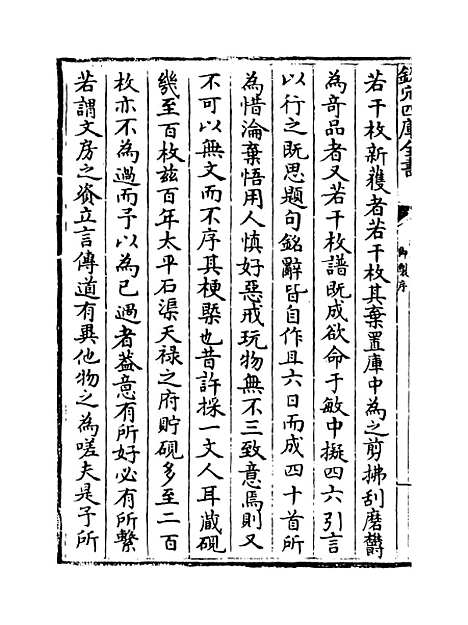 欽定四庫全書
御製序
若干枚新獲者若干枚其棄置庫中為之剪拂刮磨欝
為奇品者又若干枚譜既成欲命于敏中擬四六引言
以行之既思題句銘辭皆自作且六日而成四十首所
為惜淪棄悟用人慎好惡戒玩物無不三致意焉則又
不可以無文而不序其梗槩也昔許採一文人耳蔵硯
幾至百枚兹百年太平石渠天禄之府貯硯多至二百
枚亦不為過而予以為已過者葢意有所好必有所繫
若謂文房之資立言傳道有異他物之為嗟夫是予所